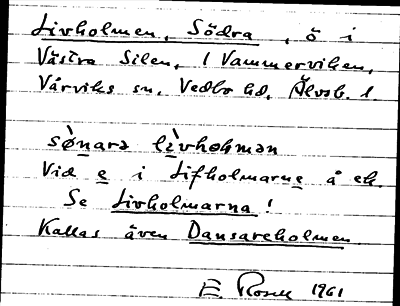 Livholmen, Södra, ö i
Västra Silen, i Vammerviken,
Vårviks sn, Vedbo hd, Älvsb. l.
sø̀nara lìvhoḷmən
Vid e i Lifholmarne å ek.
Se Livholmarna!
Kallas även Dansareholmen
E 1961